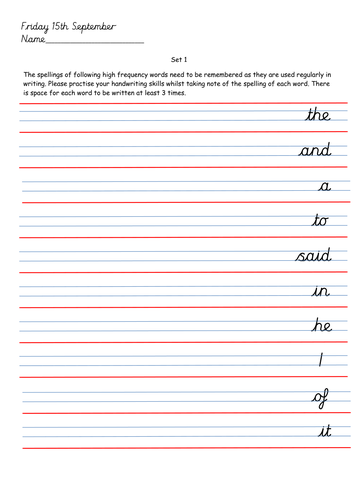 Friday 15th September
Name
Set 1
The spellings of following high frequency words need to be remembered as they are used regularly in
writing. Please practise your handwriting skills whilst taking note of the spelling of each word. There
is space for each word to be written at least 3 times.
the
and
a
to
said
in
he
I
of
it